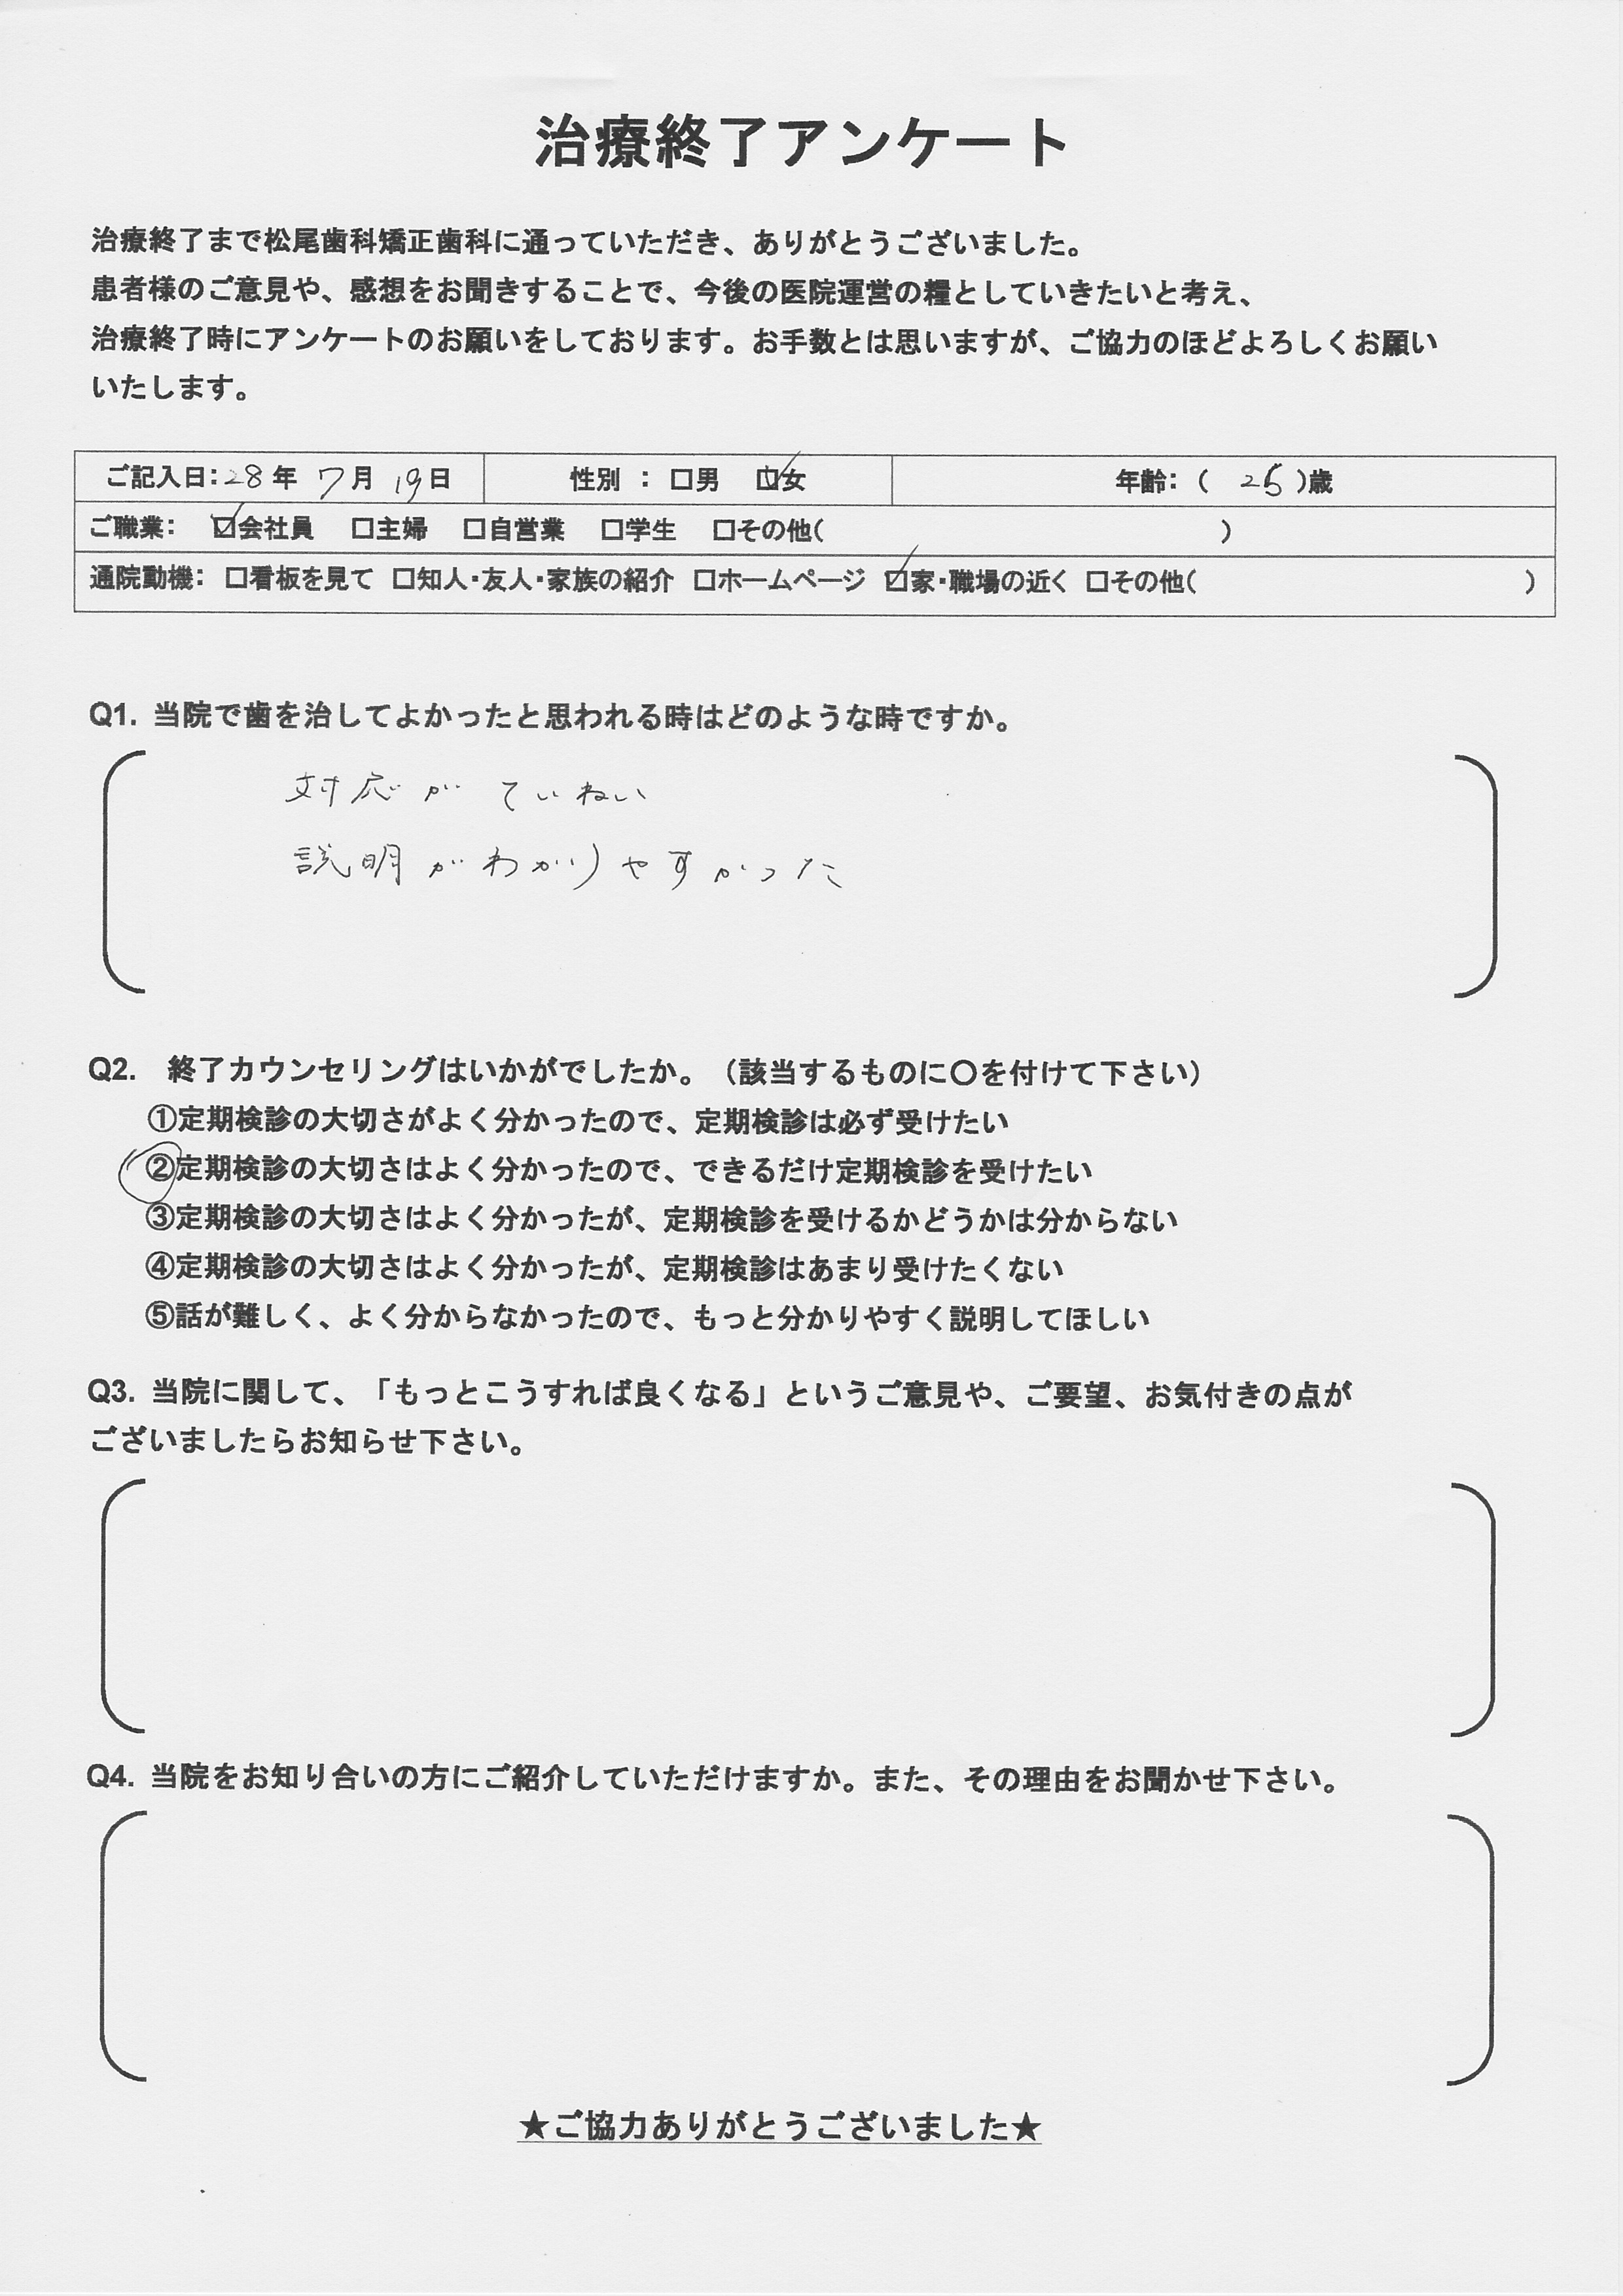 治療終了アンケート
治療終了まで松尾歯科矯正歯科に通っていただき、ありがとうございました。
患者様のご意見や、感想をお聞きすることで、今後の医院運営の糧としていきたいと考え、
治療終了時にアンケートのお願いをしております。お手数とは思いますが、ご協力のほどよろしくお願い
いたします。
ご記入日：28年 7月 19日 性別 ： □男 ☑女 年齢：（ 25 ）歳
ご職業： ☑会社員 □主婦 □自営業 □学生 □その他（ ）
通院動機： □看板を見て □知人・友人・家族の紹介 □ホームページ ☑家・職場の近く □その他（ ）
Q1. 当院で歯を治してよかったと思われる時はどのような時ですか。
対応が ていねい
説明がわかりやすかった
Q2. 終了カウンセリングはいかがでしたか。（該当するものに〇を付けて下さい）
①定期検診の大切さがよく分かったので、定期検診は必ず受けたい
②定期検診の大切さはよく分かったので、できるだけ定期検診を受けたい
③定期検診の大切さはよく分かったが、定期検診を受けるかどうかは分からない
④定期検診の大切さはよく分かったが、定期検診はあまり受けたくない
⑤話が難しく、よく分からなかったので、もっと分かりやすく説明してほしい
Q3. 当院に関して、「もっとこうすれば良くなる」というご意見や、ご要望、お気付きの点が
ございましたらお知らせ下さい。
Q4. 当院をお知り合いの方にご紹介していただけますか。また、その理由をお聞かせ下さい。
★ご協力ありがとうございました★